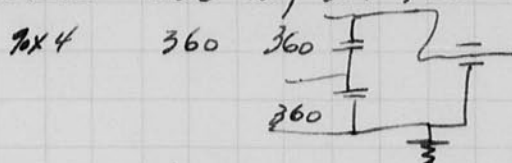 90x4 360 360
360